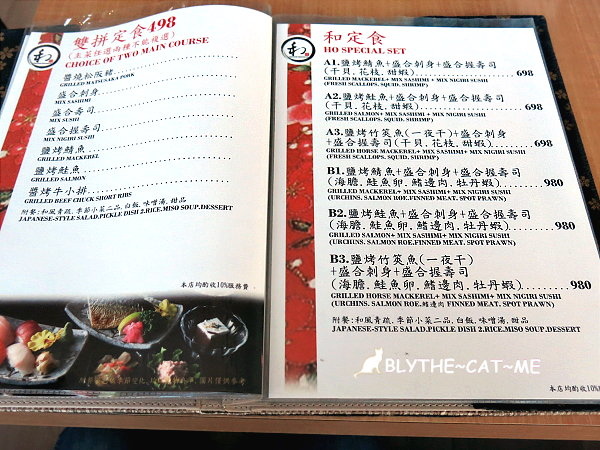 雙拼定食498
(主菜任選兩種不能複選)
CHOICE OF TWO MAIN COURSE
醬燒松阪豬
GRILLED MATSUSAKA PORK
盛合刺身
MIX SASHIMI
盛合壽司
MIX SUSHI
盛合握壽司
MIX NIGIRI SUSHI
鹽烤鯖魚
GRILLED MACKEREL
鹽烤鮭魚
GRILLED SALMON
醬烤牛小排
GRILLED BEEF CHUCK SHORT RIBS
附餐:和風青蔬,季節小菜二品,白飯,味噌湯,甜品
JAPANESE-STYLE SALAD.PICKLE DISH 2.RICE.MISO SOUP.DESSERT
本店均酌收10%服務費
圖片僅供參考
和定食
HO SPECIAL SET
A1.鹽烤鯖魚+盛合刺身+盛合握壽司
(干貝.花枝.甜蝦)..................698
GRILLED MACKEREL+ MIX SASHIMI+ MIX NIGIRI SUSHI
(FRESH SCALLOPS. SQUID. SHRIMP)
A2.鹽烤鮭魚+盛合刺身+盛合握壽司
(干貝.花枝.甜蝦)..................698
GRILLED SALMON+ MIX SASHIMI+ MIX NIGIRI SUSHI
(FRESH SCALLOPS. SQUID. SHRIMP)
A3.鹽烤竹筴魚(一夜干)+盛合刺身
+盛合握壽司(干貝.花枝.甜蝦)......698
GRILLED HORSE MACKEREL+ MIX SASHIMI+ MIX NIGIRI SUSHI
(FRESH SCALLOPS. SQUID. SHRIMP)
B1.鹽烤鯖魚+盛合刺身+盛合握壽司
(海膽.鮭魚卵.鰭邊肉.牡丹蝦)........980
GRILLED MACKEREL+ MIX SASHIMI+ MIX NIGIRI SUSHI
(URCHINS. SALMON ROE.FINNED MEAT. SPOT PRAWN)
B2.鹽烤鮭魚+盛合刺身+盛合握壽司
(海膽.鮭魚卵.鰭邊肉.牡丹蝦)........980
GRILLED SALMON+ MIX SASHIMI+ MIX NIGIRI SUSHI
(URCHINS. SALMON ROE.FINNED MEAT. SPOT PRAWN)
B3.鹽烤竹筴魚(一夜干)
+盛合刺身+盛合握壽司
(海膽.鮭魚卵.鰭邊肉.牡丹蝦)........980
GRILLED HORSE MACKEREL+ MIX SASHIMI+ MIX NIGIRI SUSHI
(URCHINS. SALMON ROE.鰭邊肉 FINNED MEAT. SPOT PRAWN)
附餐:和風青蔬,季節小菜二品,白飯,味噌湯,甜品
JAPANESE-STYLE SALAD.PICKLE DISH 2.RICE.MISO SOUP.DESSERT
BLYTHE~CAT~ME
本店均酌收10%